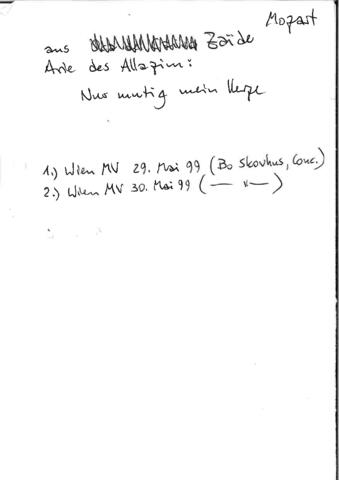 Mozart
aus Zaïde
Arie des Allazim:
Nur mutig mein Herze
1.) Wien MV 29. Mai 99 (Bo Skovhus, Conc.)
2.) Wien MV 30. Mai 99 (— " —)